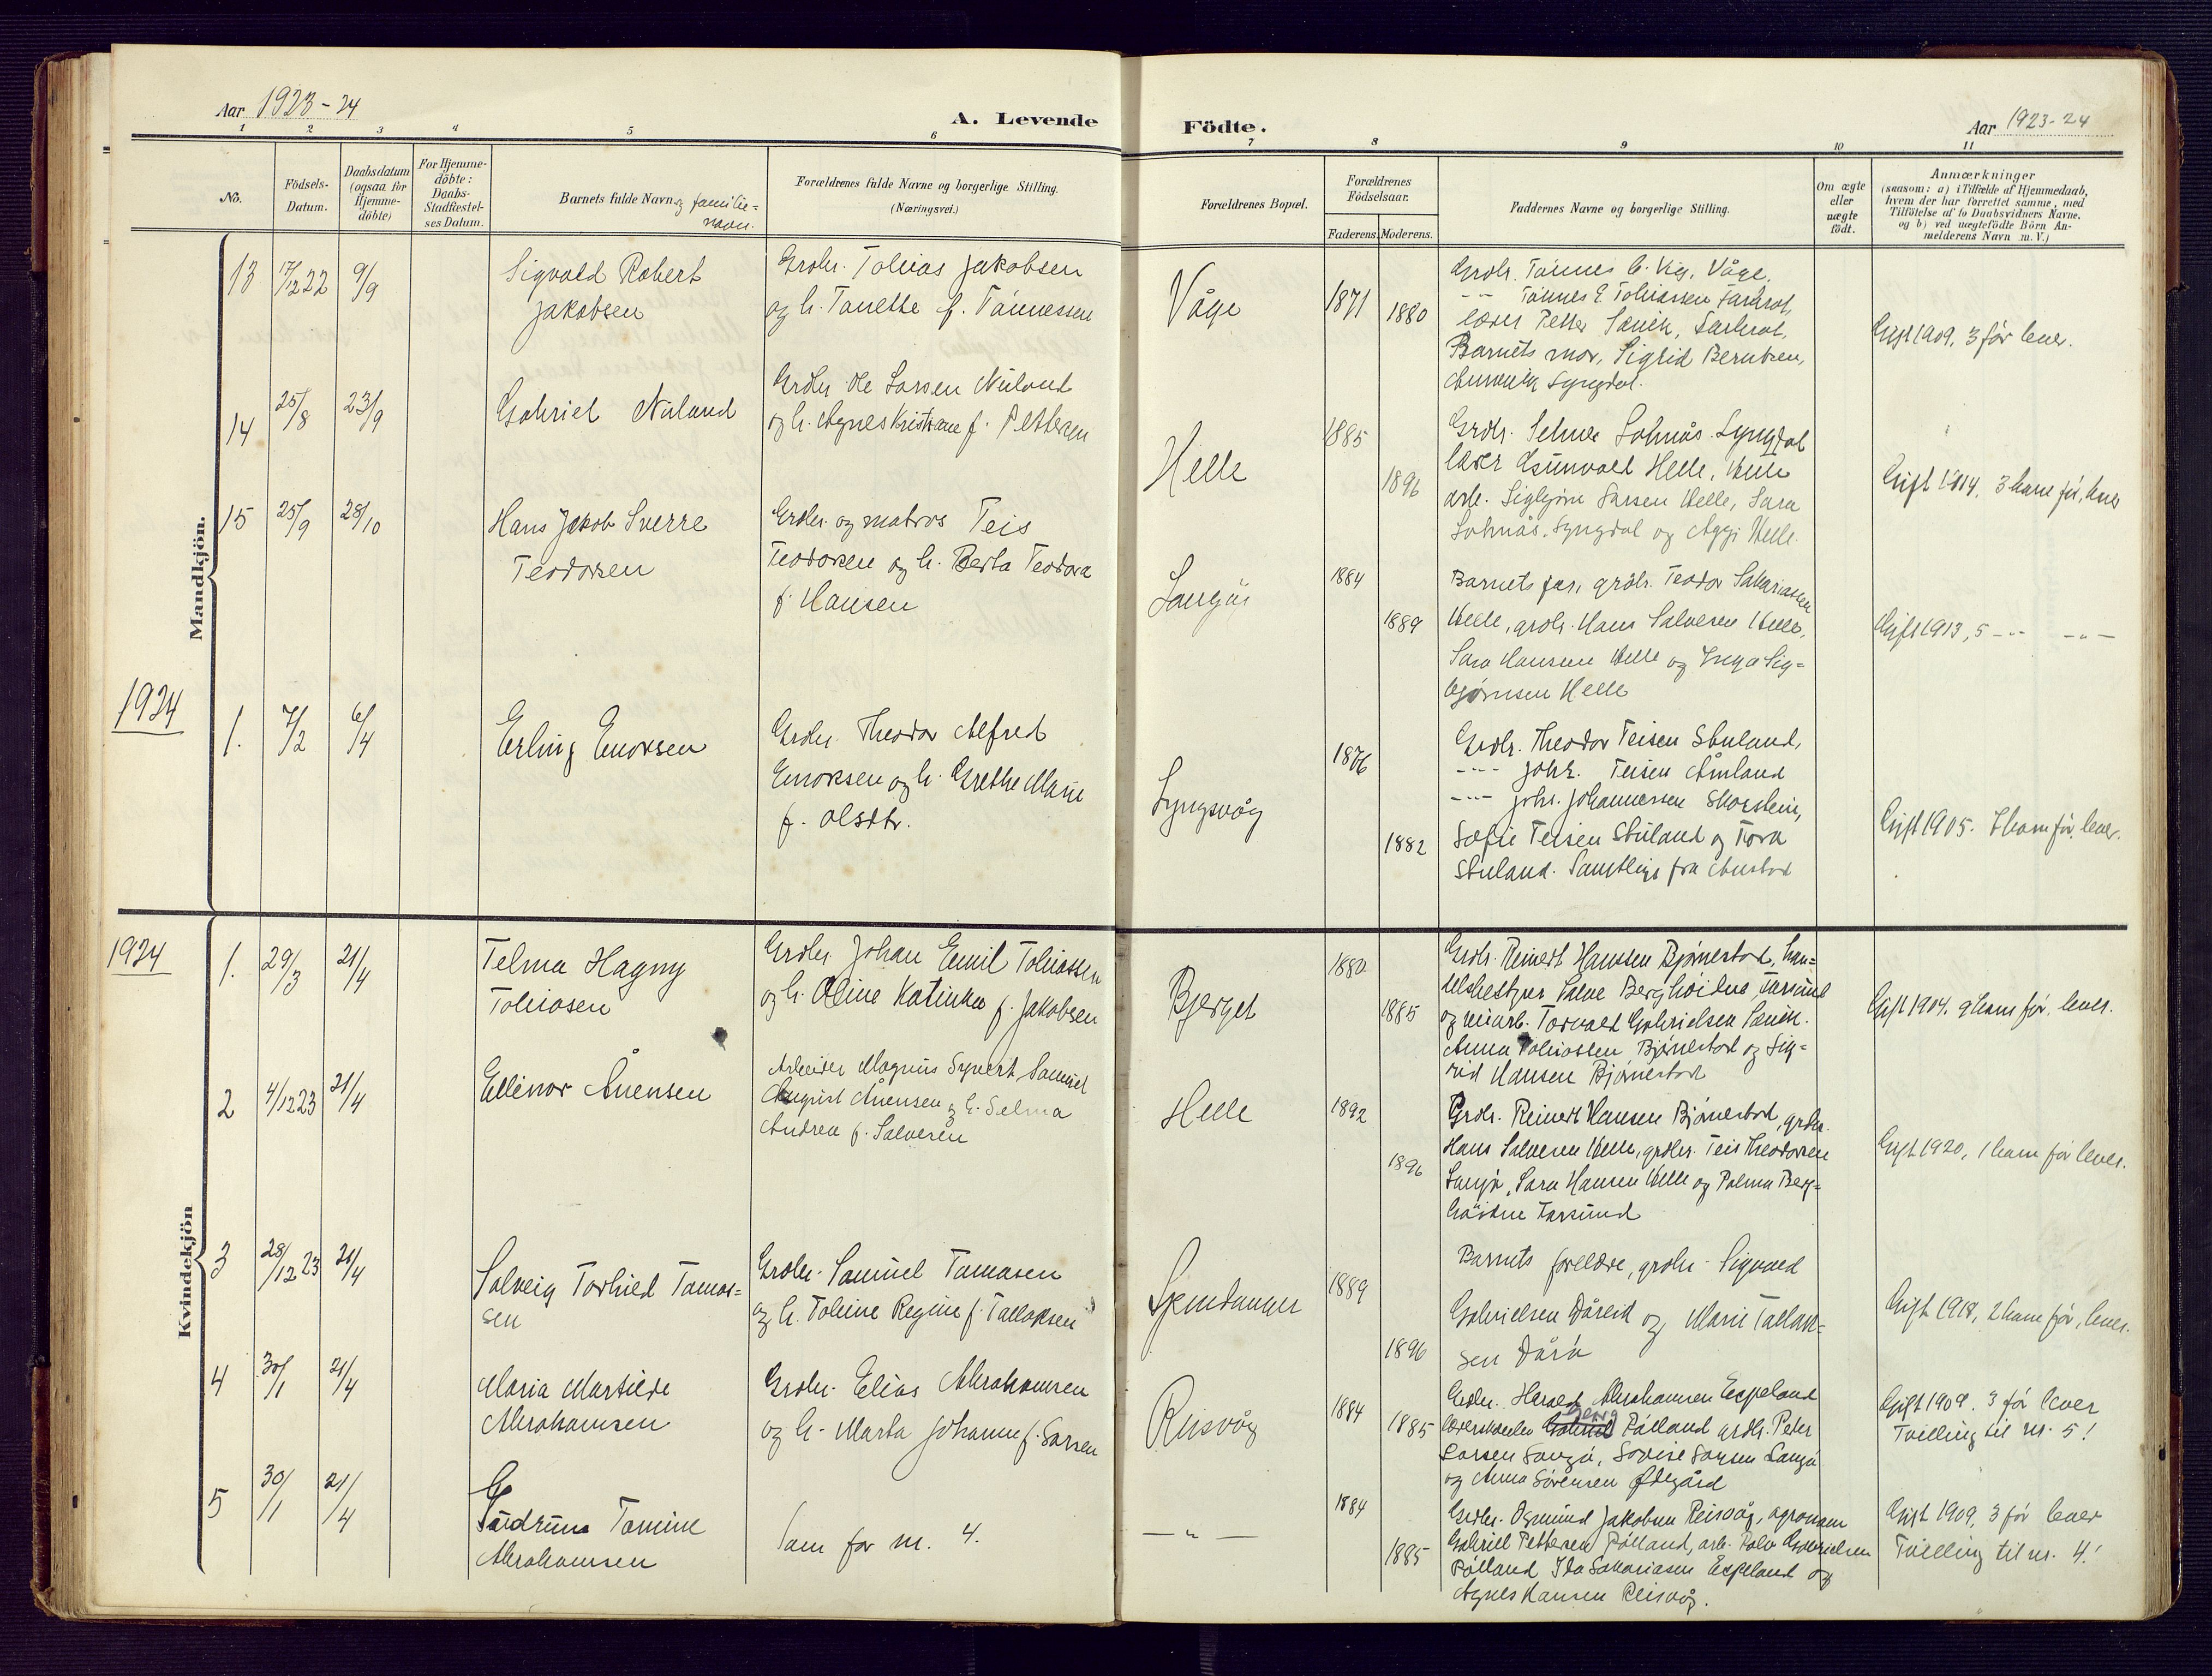 Aar 1923-24
A. Levende
Födte.
Aar 1923-24
1 2 3 4 5 6 7 8 9 10 11
No.
Födsels-
Datum.
Daabsdatum
(ogsaa for
Hjemme-
döbte)
For Hjemme-
döbte:
Daabs-
Stadfæstel-
ses Datum.
Barnets fulde Navn og familie=
navn.
Forældrenes fulde Navne og borgerlige Stilling.
(Næringsvei.)
Forældrenes Bopæl.
Forældrenes
Födselsaar.
Faderens. Moderens.
Faddernes Navne og borgerlige Stilling.
Om ægte
eller
uægte
födt.
Anmærkninger
(saasom: a) i Tilfælde af Hjemmedaab,
hvem der har forrettet samme, med
Tilföielse af to Daabsvidners Navne.
og b) ved uægtefödte Börn An-
melderens Navn m. V.)
Mandkjön.
13 17/12 22 9/9
Sigvald Robert
Jakobsen
Grdbr. Tobias Jakobsen
og h. Tanette f. Tønnessen
Våge
1871 1880
Grdbr. Tønnes
Tønnes E. Tobiassen
lærer Petter
Barnets mor, Sigrid Berntsen,
Lyngdal.
Gift 1909, 3 før lever.
14 25/8 23/9
Gabriel Nuland
Grdbr Ole Larsen Nuland
og h. Agnes Kristiane f. Pettersen
Helle
1885 1896
Grdbr. Selmer Lohnås Lyngdal
lærer Gunvald Helle, Helle
arb. Sigbjørn Larsen Helle, Sara
Lohnås, Lyngdal og Aggi Helle.
Gift 1914, 3 barn før, lever
15 25/9 28/10
Hans Jakob Sverre
Teodorsen
Grdbr. og matros Teis
Teodorsen og h. Berta Teodora
f. Hansen
Langøy
1884 1889
Barnets far, grdbr. Teodor Sakariassen
Helle, grdbr. Hans Salvesen Helle,
Sara Hansen Helle og Inga Sig=
bjørnsen Helle
Gift 1913, 5 -"- -"-
1924
1. 7/2 6/4
Erling Enoksen
Grdbr. Theodor Alfred
Enoksen og h. Grethe Marie
f. Olsdtr.
Lyngsvåg
1876 1882
Grdbr. Theodor Teisen Stuland,
-"- Johs. Teisen Åmland
-"- Johs. Johannessen Skorstein,
Sofie Teisen Stuland og Tora
Stuland. Samtlige fra Austad
Gift 1905. 7 barn før, lever.
Kvindekjön
1924
1. 29/3 21/4
Telma Hagny
Tobiasen
Grdbr Johan Emil Tobiassen
og h. Oline Katinka f. Jakobsen
Bjerget
1880 1885
Grdbr. Reinert Hanssen Bjørnestad, han=
delsbestyrer Salve Berghøidne Farsund
og Torvald Gabrielsen
Anna Tobiassen Bjørnestad og Sig=
rid Hansen Bjørnestad
Gift 1904. 9 barn før, lever.
2 4/12 23 21/4
Ellinor Ånensen
Arbeider Magnus Syvert Samuel
August Ånensen og h. Selma
Andrea f. Salvesen
Helle
1892 1896
Grdbr. Reinert Hansen Bjørnestad, grdbr.
Hans Salvesen Helle, grdbr. Teis Theodorsen
Langø, Sara Hansen Helle og Palma Berg=
høidne Farsund
Gift 1920, 1 barn før lever.
3 28/12 23 21/4
Solveig Torhild Tomas=
sen
Grdbr. Samuel Tomasen
og h. Toline Regine f. Tallaksen
1889 1896
Barnets foreldre, grdbr. Sigvald
Gabrielsen og Marie Tallak=
sen
Gift 1918, 2 barn før, lever.
4 30/1 21/4
Maria Martilde
Abrahamsen
Grdbr. Elias Abrahamsen
og h. Marta Johanne f. Larsen
Risvåg
1884 1885
Grdbr. Harald Abrahamsen Espeland
Georg
Gabriel grdbr. Peter
Larsen Langø, Lovise Larsen Langø
og Anna Sørensen Ødegård
Gift 1909. 3 før lever
Tvilling til nr. 5!
5 30/1 21/4
Gudrun Tomine
Abrahamsen
Som for nr. 4.
— " —
1884 1885
Grdbr. Osmund Jakobsen Reisvåg, agronom
Gabriel Pettersen
Ida Sakariasen Espeland og
Agnes Hansen Reisvåg.
Gift 1909, 3 før lever
Tvilling til nr. 4!